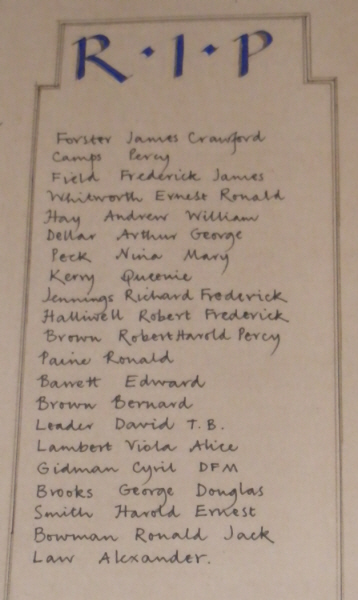 R · I · P
Forster James Crawford
Camps Percy
Field Frederick James
Whitworth Ernest Ronald
Hay Andrew William
Dellar Arthur George
Peck Nina Mary
Kerry Queenie
Jennings Richard Frederick
Halliwell Robert Frederick
Brown Robert Harold Percy
Paine Ronald
Barrett Edward
Brown Bernard
Leader David T.B.
Lambert Viola Alice
Gidman Cyril DFM
Brooks George Douglas
Smith Harold Ernest
Bowman Ronald Jack
Law Alexander.